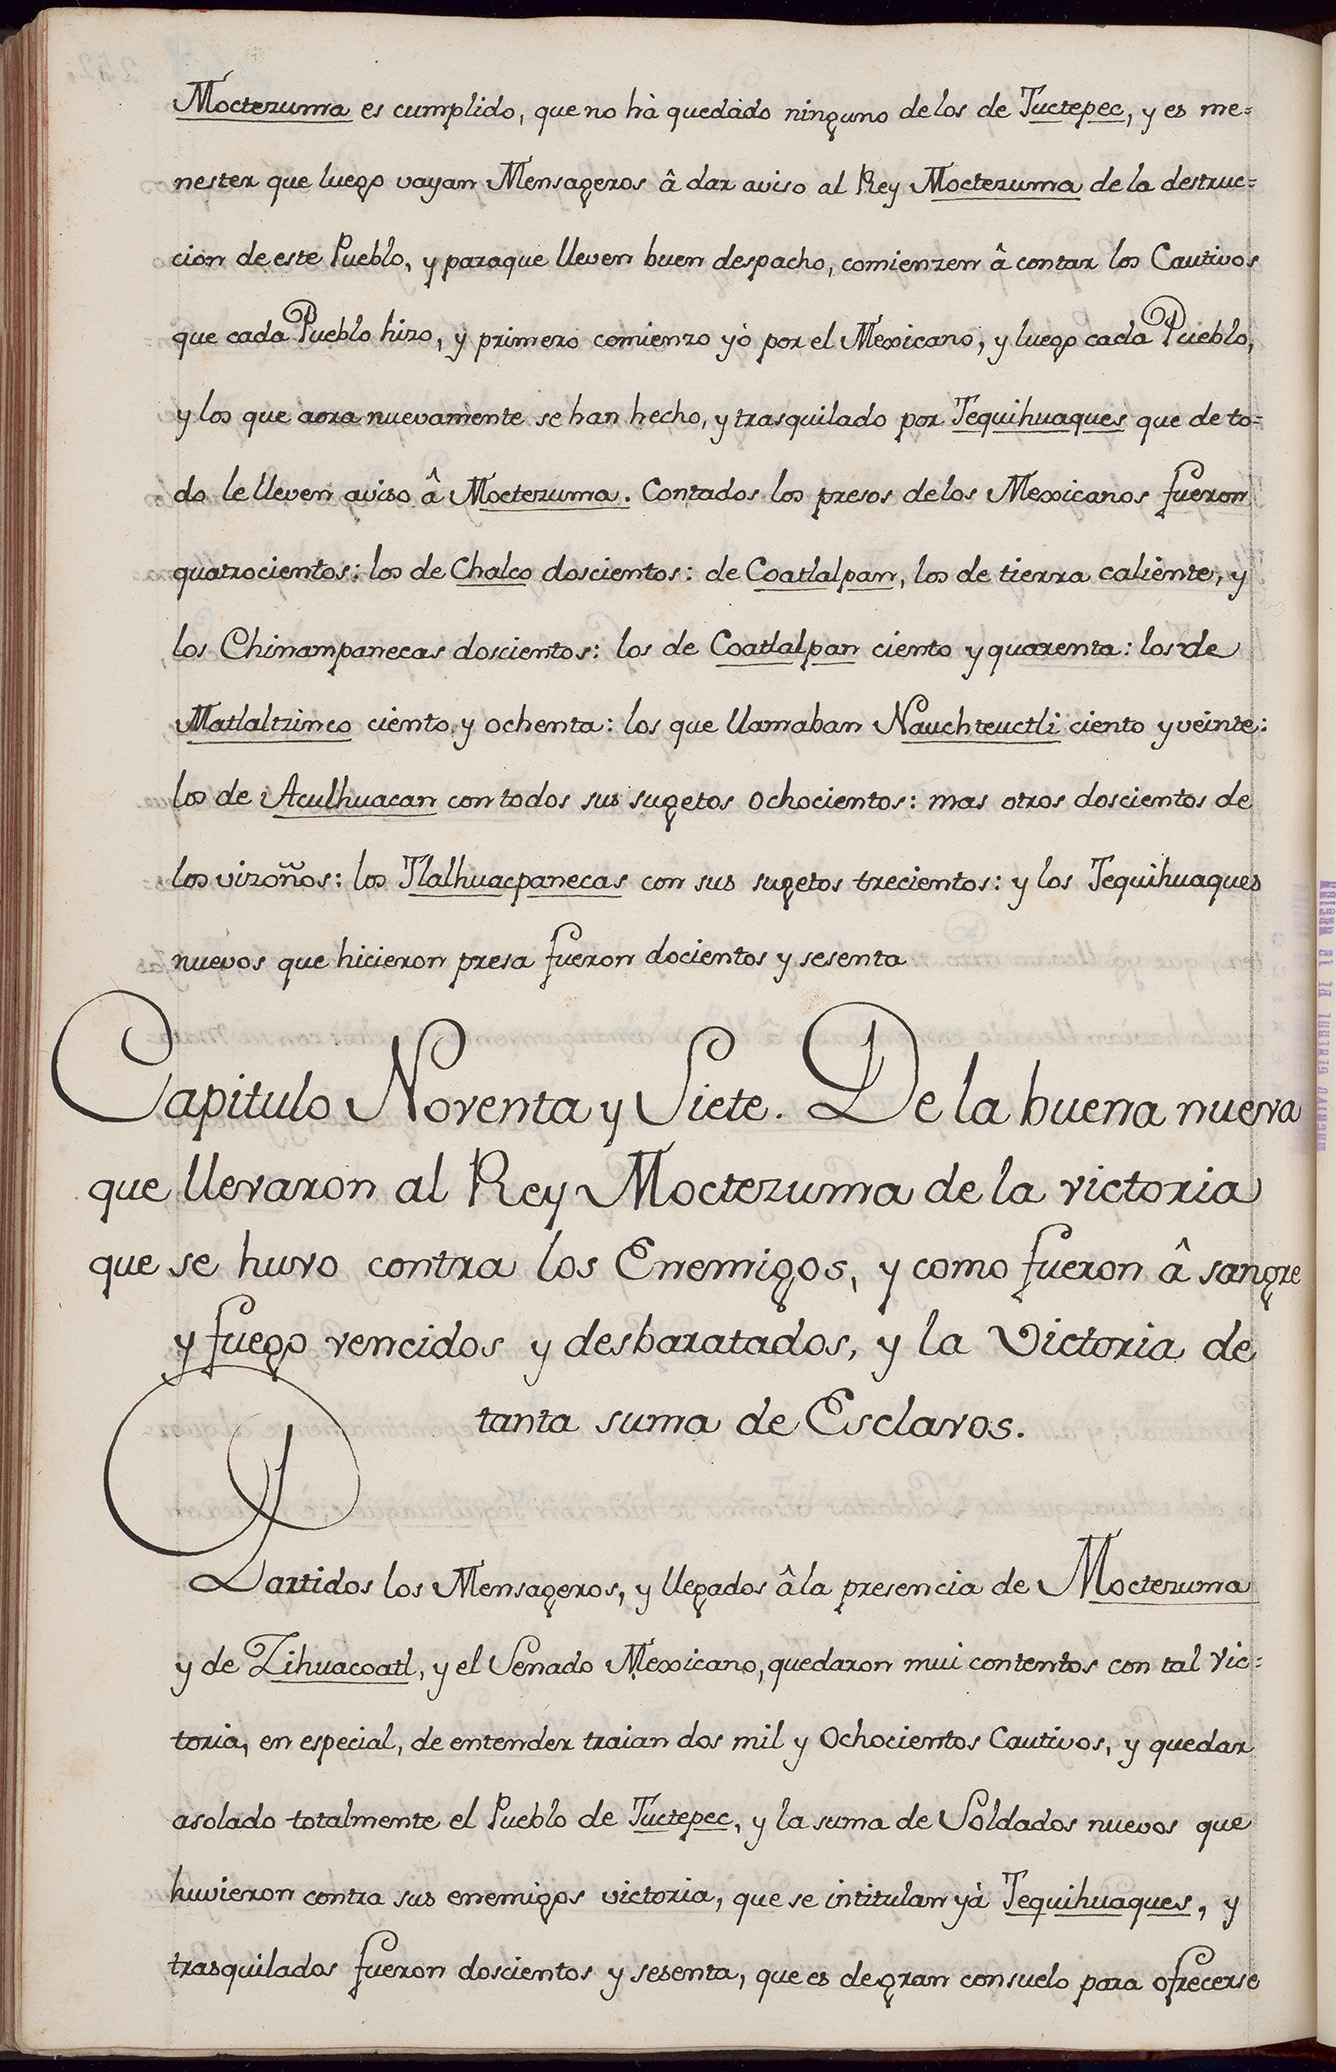 Moctezuma es cumplido, que no hà quedàdo ninguno de los de Tuctepec, y es me=
nester que luego vayan Mensageros â dar aviso al Rey Moctezuma de la destruc=
cion de este Pueblo, y paraque lleven buen despacho, comienzen â contar los Cautivos
que cada Pueblo hizo, y primero comienzo yò por el Mexicano, y luego cada Pueblo,
y los que aora nuevamente se han hecho, y trasquilado por Tequihuaques que de to=
do le lleven aviso â Moctezuma. Contados los presos de los Mexicanos fueron
quatrocientos: los de Chalco doscientos: de Coatlalpan, los de tierra caliente, y
los Chinampanecas doscientos: los de Coatlalpan ciento y quarenta: los de
Matlaltzinco ciento y ochenta: los que llamaban Nauchteuctli ciento y veinte:
los de Aculhuacan con todos sus sugetos ochocientos: mas otros doscientos de
los vizoños: los Tlalhuacpanecas con sus sugetos trecientos: y los Tequihuaques
nuevos que hicieron presa fueron docientos y sesenta
Capitulo Noventa y Siete. De la buena nueva
que llevaron al Rey Moctezuma de la victoria
que se huvo contra los Enemigos, y como fueron â sangre
y fuego vencidos y desbaratados, y la Victoria de
tanta suma de Esclavos.
Partidos los Mensageros, y llegados âla presencia de Moctezuma
y de Zihuacoatl, y el Senado Mexicano, quedaron mui contentos con tal Vic=
toria, en especial, de entender traian dos mil y Ochocientos Cautivos, y quedar
asolado totalmente el Pueblo de Tuctepec, y la suma de Soldados nuevos que
huvieron contra sus enemigos victoria, que se intitulan yà Tequihuaques, y
trasquilados fueron doscientos y sesenta, que es de gran consuelo para ofrecerse
ARCHIVO GENERAL DE LA NACION